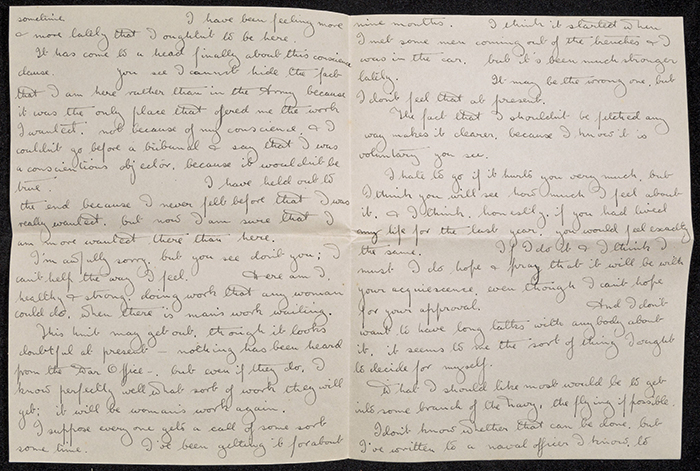 sometime. I have been feeling more
& more lately that I oughtn't to be here.
It has come to a head finally about this conscience
clause. You see I cannot hide the fact
that I am here rather than in the Army because
it was the only place that offered me the work
I wanted; not because of my conscience. & I
couldn't go before a tribunal & say that I was
a conscientious objector, because it wouldn't be
true. I have held out to
the end because I never felt before that I was
really wanted. but now I am sure that I
am more wanted there than here.
I'm awfully sorry, but you see don't you; I
can't help the way I feel. Here am I,
healthy & strong, doing work that any woman
could do, when there is man's work waiting.
This Unit may get out, though it looks
doubtful at present – nothing has been heard
from the War Office –. but even if they do, I
know perfectly well what sort of work they will
get; it will be woman's work again.
I suppose every one gets a call of some sort
some time. I've been getting it for about
nine months. I think it started when
I met some men coming out of the trenches & I
was in the car. but it's been much stronger
lately. It may be the wrong one, but
I don't feel that at present.
The fact that I shouldn't be fetched any
way makes it clearer, because I know it is
voluntary you see.
I hate to go if it hurts you very much, but
I think you will see how much I feel about
it, & I think, honestly, if you had lived
my life for the last year, you would feel exactly
the same. If I do it & I think I
must I do hope & pray that it will be with
your acquiescence, even though I can't hope
for your approval. And I don't
want to have long talks with anybody about
it, it seems to me the sort of thing I ought
to decide for myself.
What I should like most would be to get
into some branch of the Navy, the flying if possible.
I don't know whether that can be done, but
I've written to a naval officer I know, to